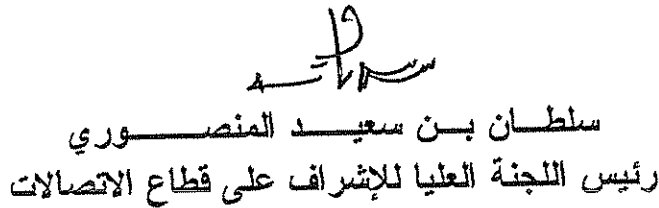 سلطان بن سعيد المنصوري
رئيس اللجنة العليا للإشراف على قطاع الاتصالات